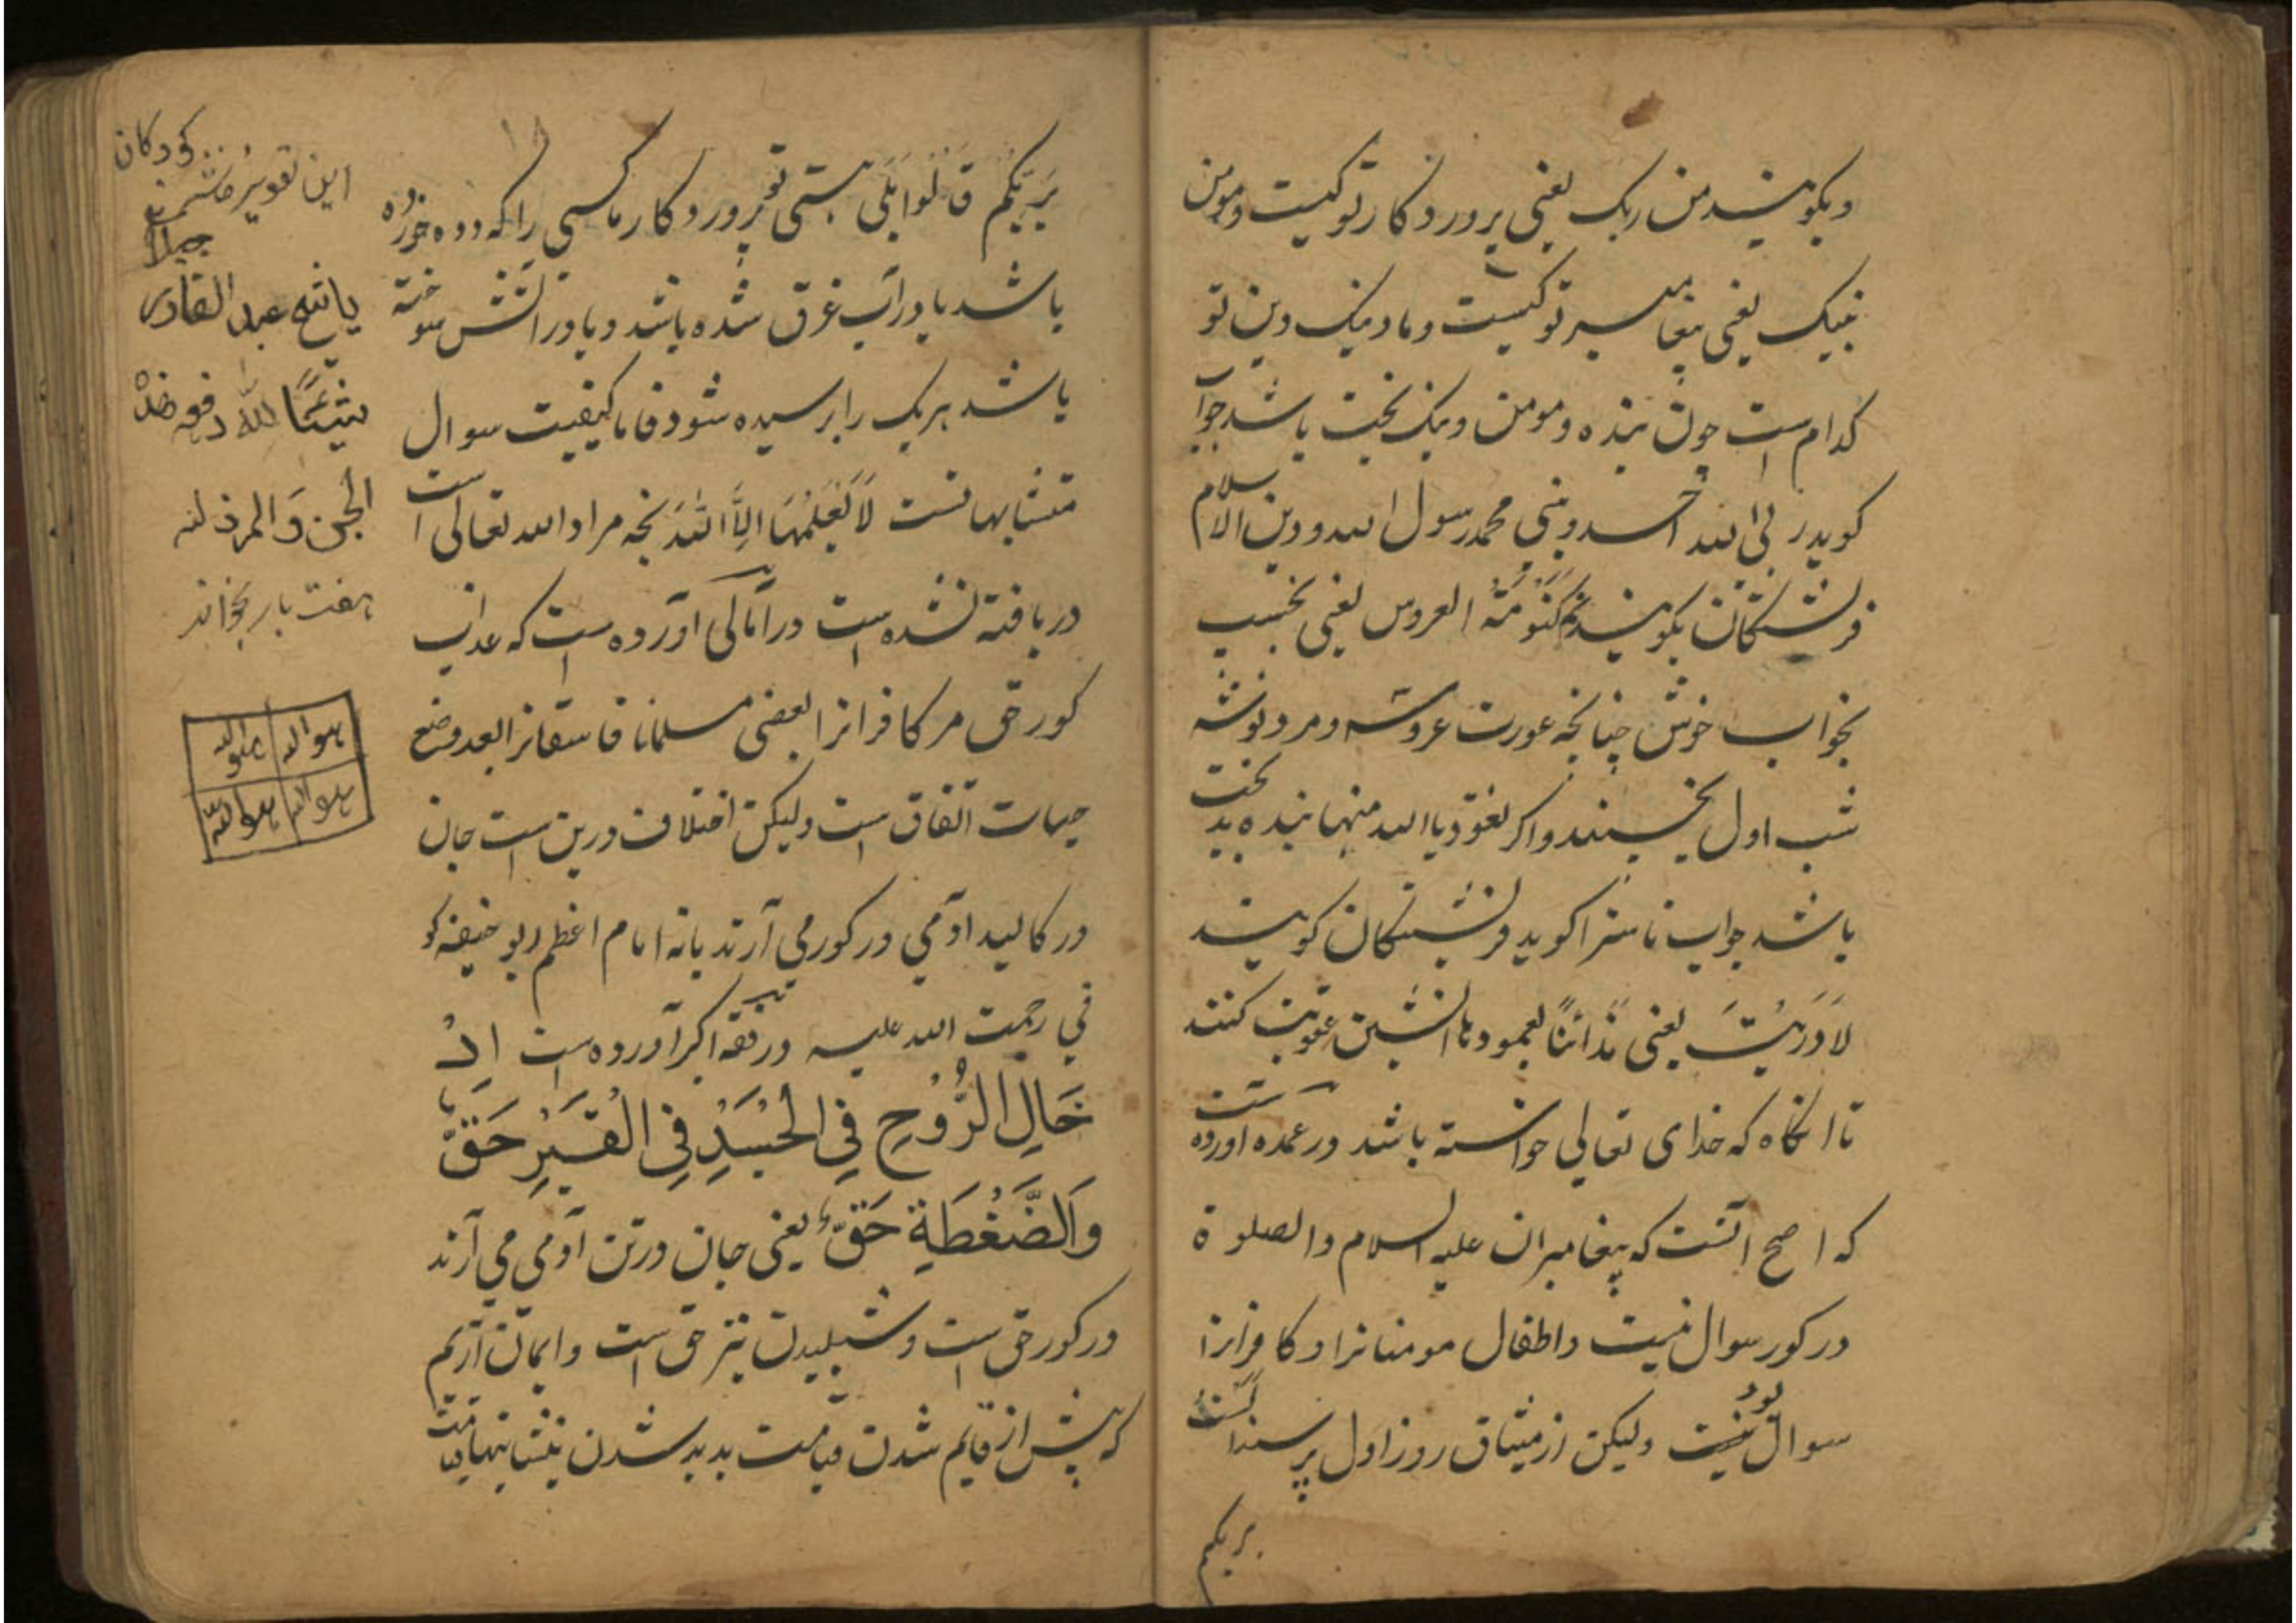 وبکویند من ربک یعنی پروردکار تو کیست ومن
نبیک یعنی پیغامبر تو کیست وما دینک دین تو
کدام است چون بنده ومومن ونیک بخت باشد جواب
کوید ربی الله احد ونبی محمد رسول الله ودین الاسلام
فرشتکان بکویند نم کَنَومَة العروس یعنی بخسپ
بخواب خوش چنانچه عورت عروسه ومرد نوشه
شب اول بخسپند واکر نعوذ بالله منها بنده بدبخت
باشد جواب ناسزا کوید فرشتکان کویند
لَا دَرَیْتَ یعنی ندانی بعمودها آتشین عقوبت کنند
تا انکاه که خدای تعالی خواسته باشد در عمده اورده است
که اصح آنست که پیغامبران علیه السلام والصلوة
در کور سوال نیست واطفال مومنانرا وکافرانرا
سوال نیست بود ولیکن از میثاق روز اول پرسند الست
بربکم
بِرَبِّکُم قَالُوا بَلَی هستی تو پروردکار ما کسی را که دده خورده
باشد یا در آب غرق شده باشد ویا در آتش سوخته
باشد هریک را پرسیده شود فاما کیفیت سوال
متشابهانست لَا یَعْلَمُهَا اِلَّا اللهُ بخه مراد الله تعالی است
دریافته نشده است در آمالی آورده است که عذاب
کور حق مر کافرانرا بعضی مسلمانا فاسقانرا بعد وضع
حیات اتفاق است ولیکن اختلاف درین است جان
در کالبد ادمی در کور می آرند یانه امام اعظم ابو حنیفه کو
فی رحمت الله علیه در فقه اکبر آورده است اِدْ
خَالِ الرُّوْحِ فِی الْجَسَدِ فِی الْقَبْرِ حَقٌّ
وَالضَّغْطَةِ حَقٌّ یعنی جان در تن آدمی می آرند
در کور حق است وشپلیدن نیز حق است وایمان آریم
که پیش از قایم شدن قیامت پدید شدن نشانیها قیامت
کودکان
این تعویذ
یا شیخ عبد القادر
شَیْئًا لله دفعه
الجن وَالمرد لله
هفت بار بخواند
هو الله هو الله
هو الله هو الله